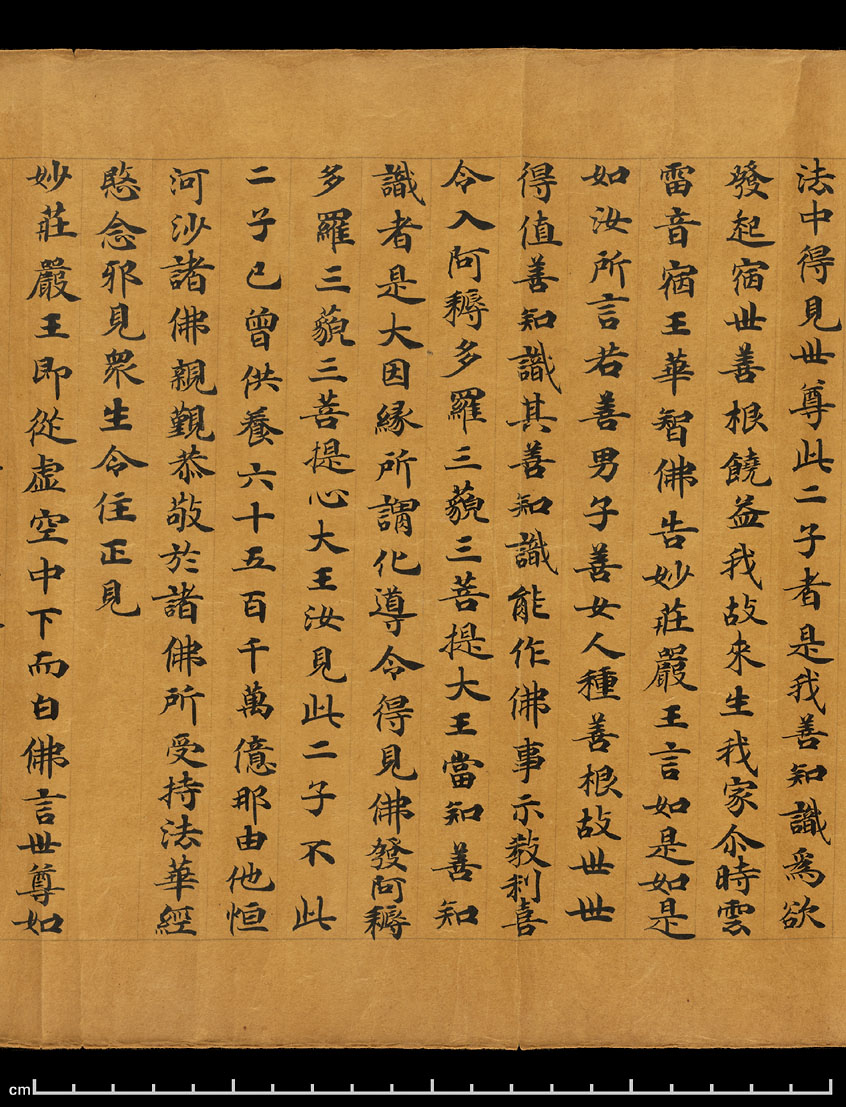 法中得見世尊此二子者是我善知識爲欲
發起宿世善根饒益我故來生我家尒時雲
雷音宿王華智佛告妙莊嚴王言如是如是
如汝所言若善男子善女人種善根故世世
得值善知識其善知識能作佛事示教利喜
令入阿耨多羅三藐三菩提大王當知善知
識者是大因縁所謂化導令得見佛發阿耨
多羅三藐三菩提心大王汝見此二子不此
二子已曾供養六十五百千萬億那由他恒
河沙諸佛親覲恭敬於諸佛所受持法華經
愍念邪見衆生令住正見
妙莊嚴王即從虛空中下而白佛言世尊如
cm